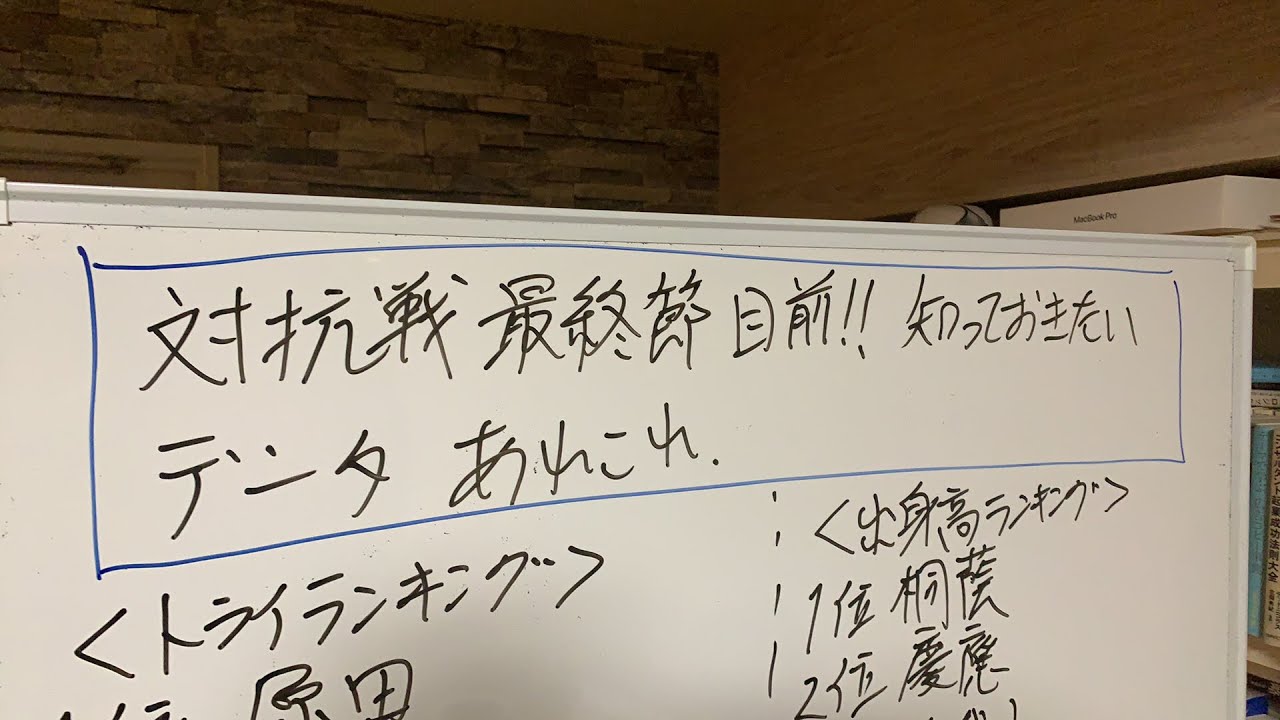 MacBook Pro
対抗戦 最終節 目前!! 知っておきたい
データ あれこれ.
<トライランキング>
原田
<出身高ランキング>
1位 桐蔭
2位 慶應